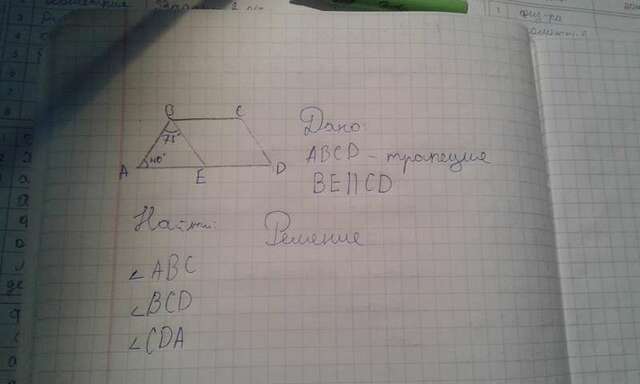 физ-ра
B C
75°
A 40° E D
Дано:
ABCD - трапеция
BE||CD
Найти: Решение
∠ABC
∠BCD
∠CDA